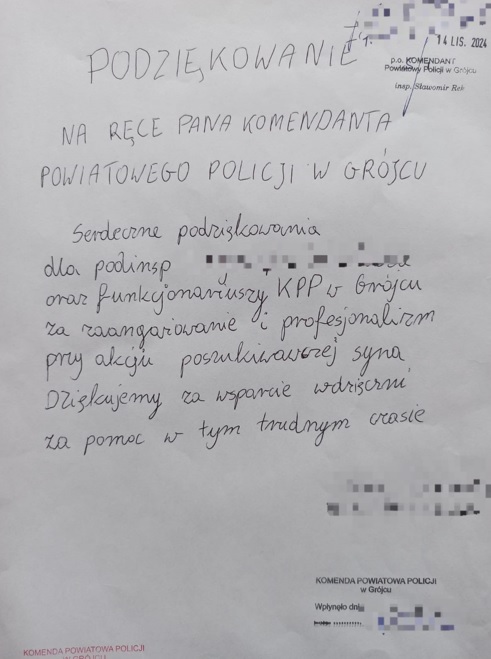 PODZIĘKOWANIE
14 LIS. 2024
p.o. KOMENDANT
Powiatowy Policji w Grójcu
insp. Sławomir Rek
NA RĘCE PANA KOMENDANTA
POWIATOWEGO POLICJI W GRÓJCU
Serdeczne podziękowania
dla podinsp
oraz funkcjonariuszy KPP w Grójcu
za zaangażowanie i profesjonalizm
przy akcji poszukiwawczej syna
Dziękujemy za wsparcie wdzięczni
za pomoc w tym trudnym czasie
KOMENDA POWIATOWA POLICJI
w Grójcu
Wpłynęło dnia
KOMENDA POWIATOWA POLICJI
W GRÓJCU